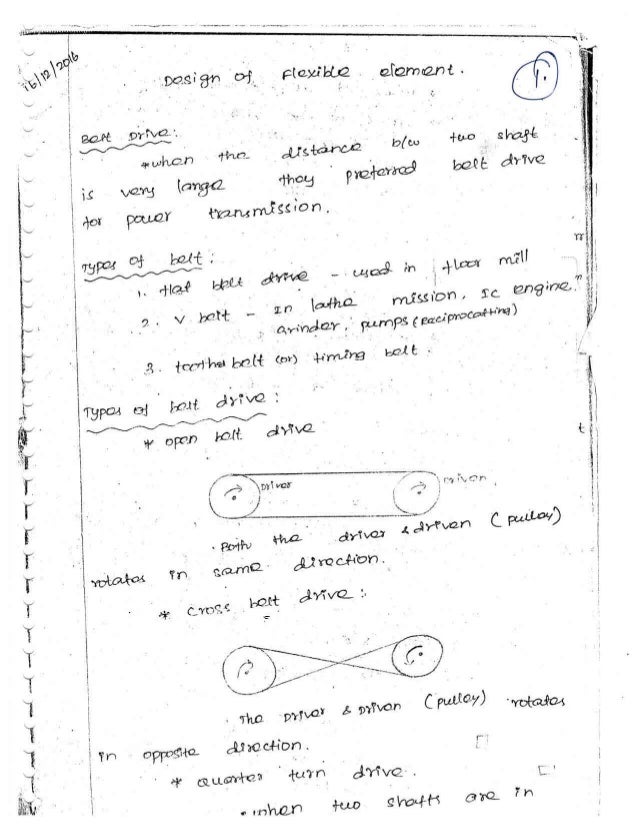 16/12/2016
Design of Flexible element.
1.
Belt Drive:
*when the distance b/w two shaft
is very large they preferred belt drive
for power transmission.
Types of belt:
1. flat belt drive - used in floor mill
2. V belt - In lathe mission, IC engine."
Grinder, pumps (Reciprocatting)
3. toothed belt (or) timing belt.
Types of belt drive:
* open belt drive
Driver
Driven
Both the driver & driven (pulley)
rotates in same direction.
* Cross belt drive:
The Driver & Driven (pulley) rotates
in opposite direction.
* Quarter turn drive.
when two shafts are in